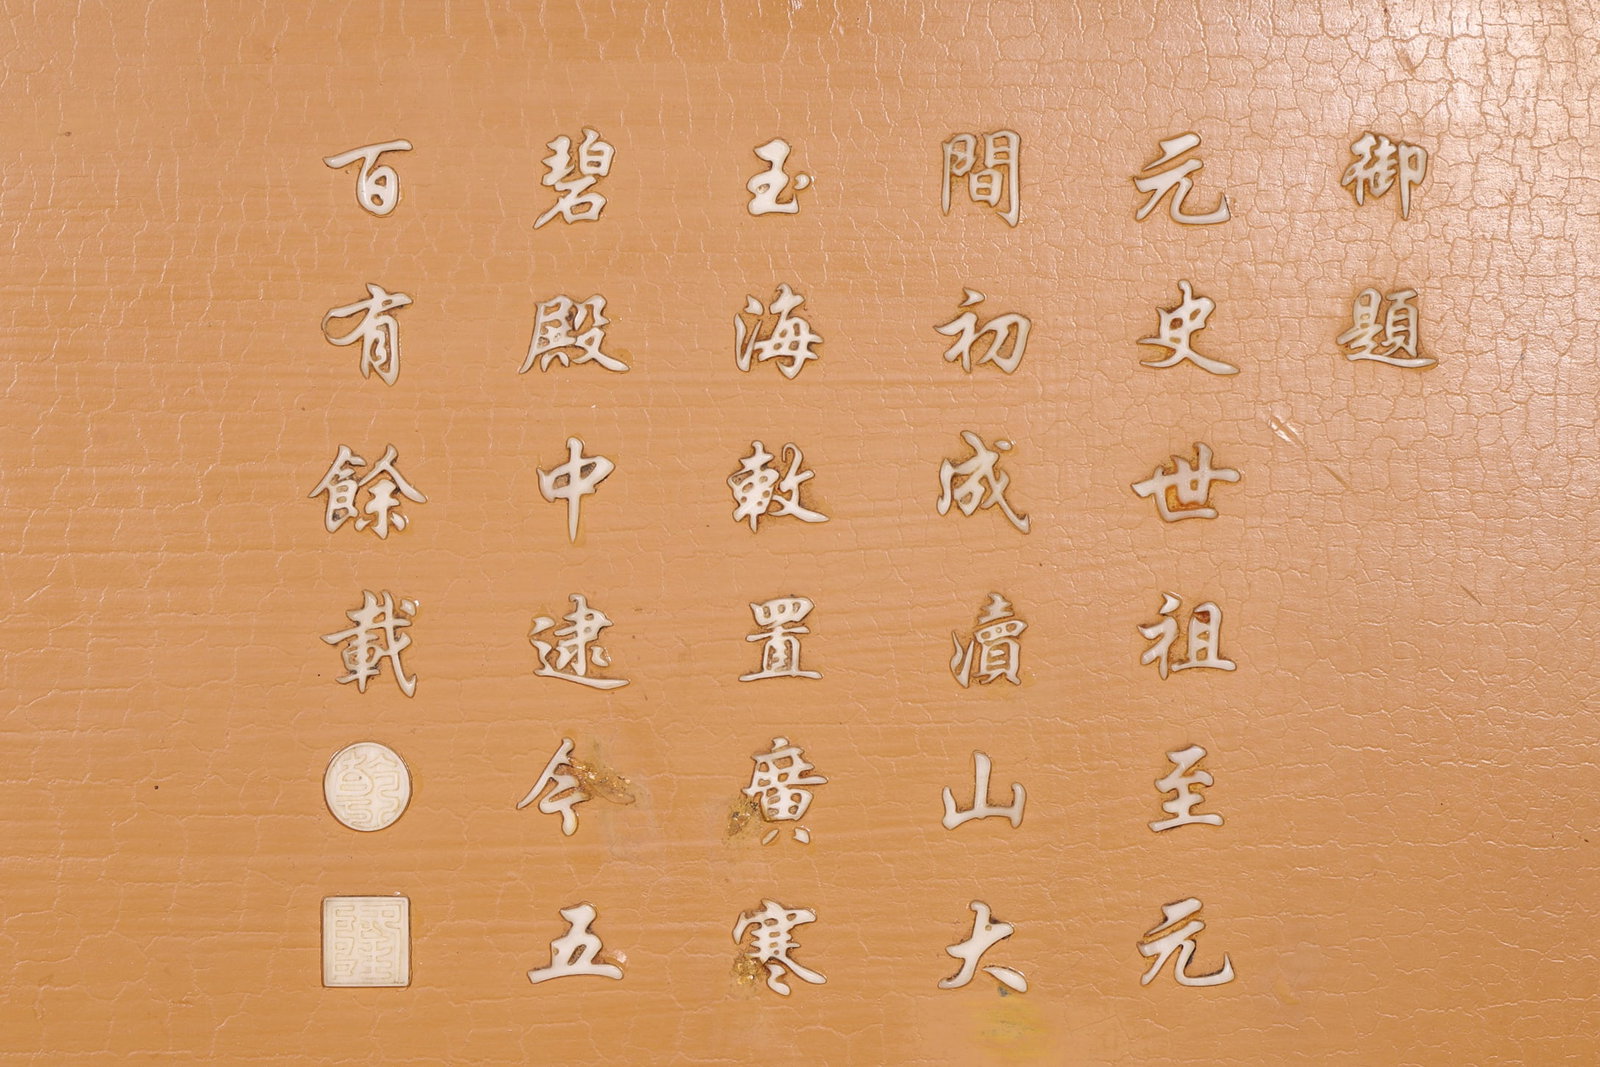 御題
元史世祖至元
間初成瀆山大
玉海敕置廣寒
碧殿中逮今五
百有餘載
乾
隆